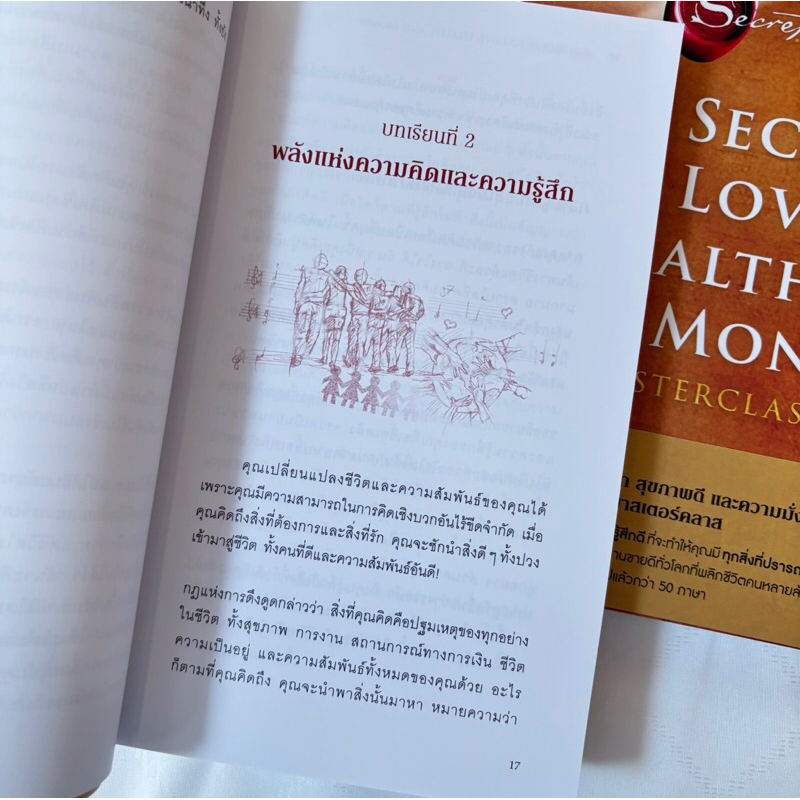 บทเรียนที่ 2
พลังแห่งความคิดและความรู้สึก
คุณเปลี่ยนแปลงชีวิตและความสัมพันธ์ของคุณได้
เพราะคุณมีความสามารถในการคิดเชิงบวกอันไร้ขีดจำกัด เมื่อ
คุณคิดถึงสิ่งที่ต้องการและสิ่งที่รัก คุณจะชักนำสิ่งดีๆ ทั้งปวง
เข้ามาสู่ชีวิต ทั้งคนที่ดีและความสัมพันธ์อันดี!
กฎแห่งการดึงดูดกล่าวว่า สิ่งที่คุณคิดคือปฐมเหตุของทุกอย่าง
ในชีวิต ทั้งสุขภาพ การงาน สถานการณ์ทางการเงิน ชีวิต
ความเป็นอยู่ และความสัมพันธ์ทั้งหมดของคุณด้วย อะไร
ก็ตามที่คุณคิดถึง คุณจะนำพาสิ่งนั้นมาหา หมายความว่า
17
Secret
SEC
LOV
ALTH
MON
STERCLAS
สุขภาพดี และความมั่ง
าสเตอร์คลาส
รู้สึกดี ที่จะทำให้คุณมี ทุกสิ่งที่ปรารถ
านขายดีทั่วโลกที่พลิกชีวิตคนหลายล้
ปแล้วกว่า 50 ภาษา